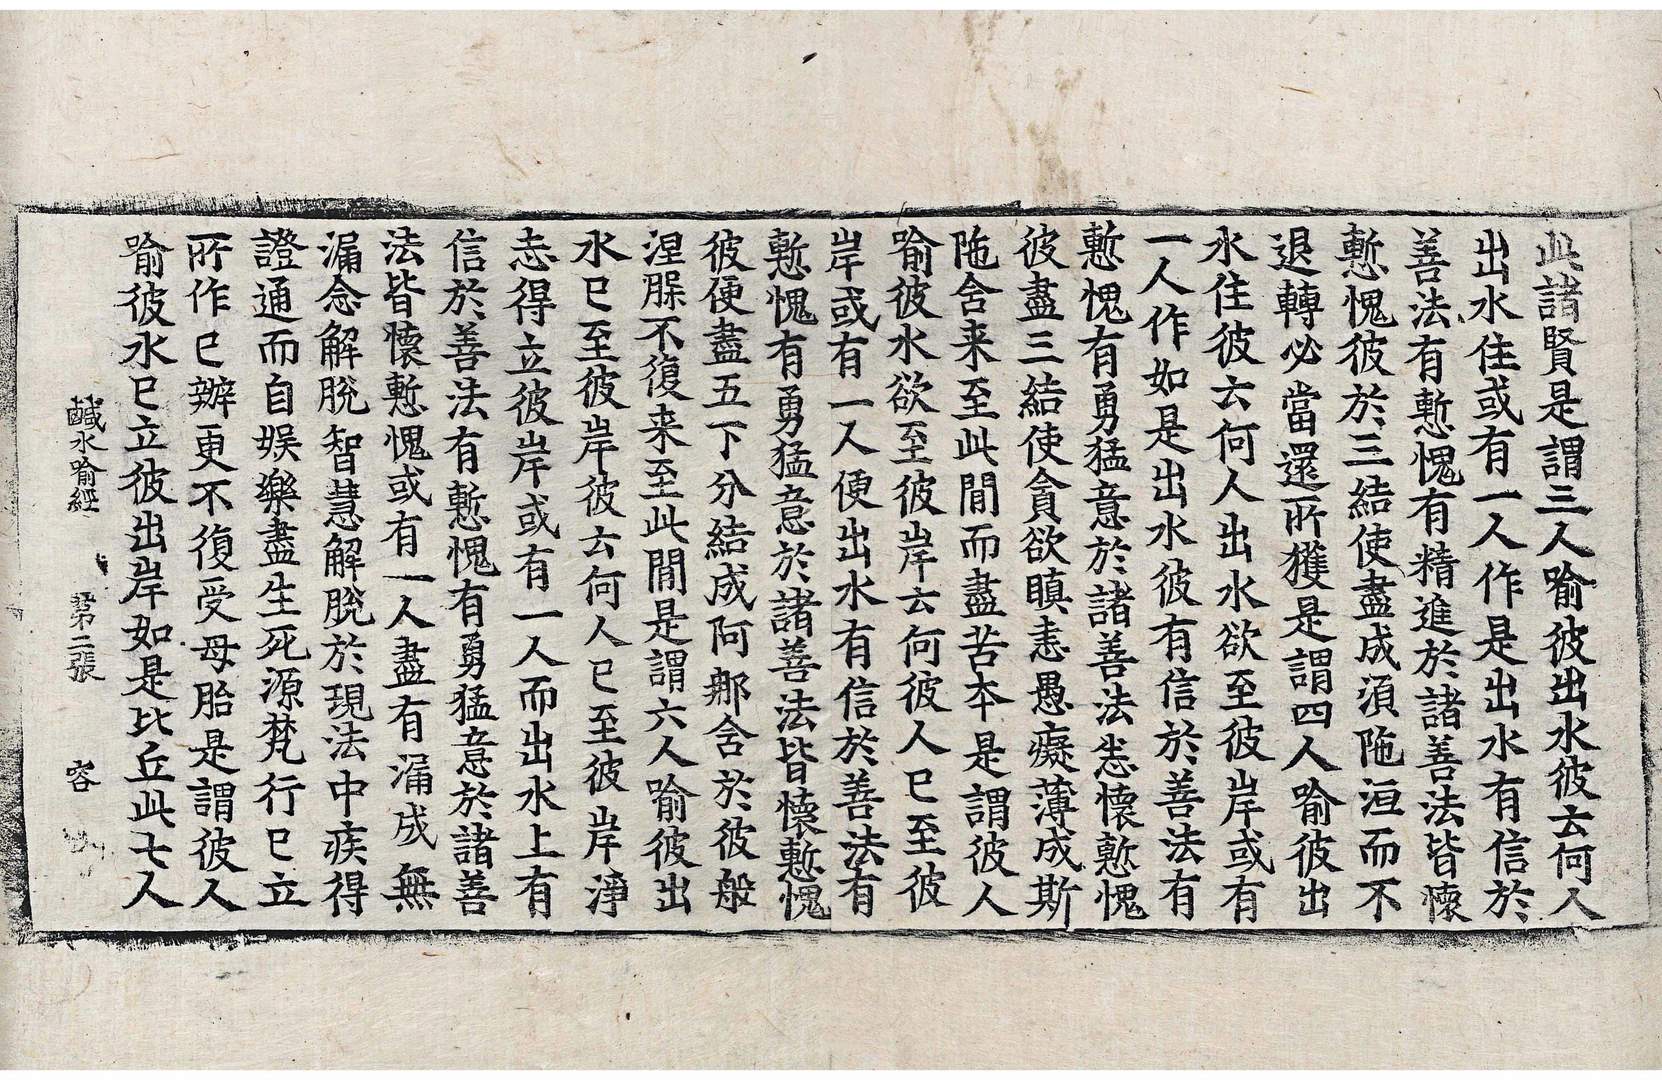 此諸賢是謂三人喻彼出水彼云何人
出水住或有一人作是出水有信於
善法有慙愧有精進於諸善法皆懷
慙愧彼於三結使盡成湏陁洹而不
退轉必當還所獲是謂四人喻彼出
水住彼云何人出水欲至彼岸或有
一人作如是出水彼有信於善法有
慙愧有勇猛意於諸善法悉懷慙愧
彼盡三結使貪欲瞋恚愚癡薄成斯
陁含来至此間而盡苦本是謂彼人
喻彼水欲至彼岸云何彼人已至彼
岸或有一人便出水有信於善法有
慙愧有勇猛意於諸善法皆懷慙愧
彼便盡五下分結成阿那含於彼般
涅槃不復来至此間是謂六人喻彼出
水已至彼岸彼云何人已至彼岸淨
志得立彼岸或有一人而出水上有
信於善法有慙愧有勇猛意於諸善
法皆懷慙愧或有一人盡有漏成無
漏念解脫智慧解脫於現法中疾得
證通而自娛樂盡生死源梵行已立
所作已辦更不復受母胎是謂彼人
喻彼水已立彼出岸如是比丘此七人
鹹水喻經 第二張 容